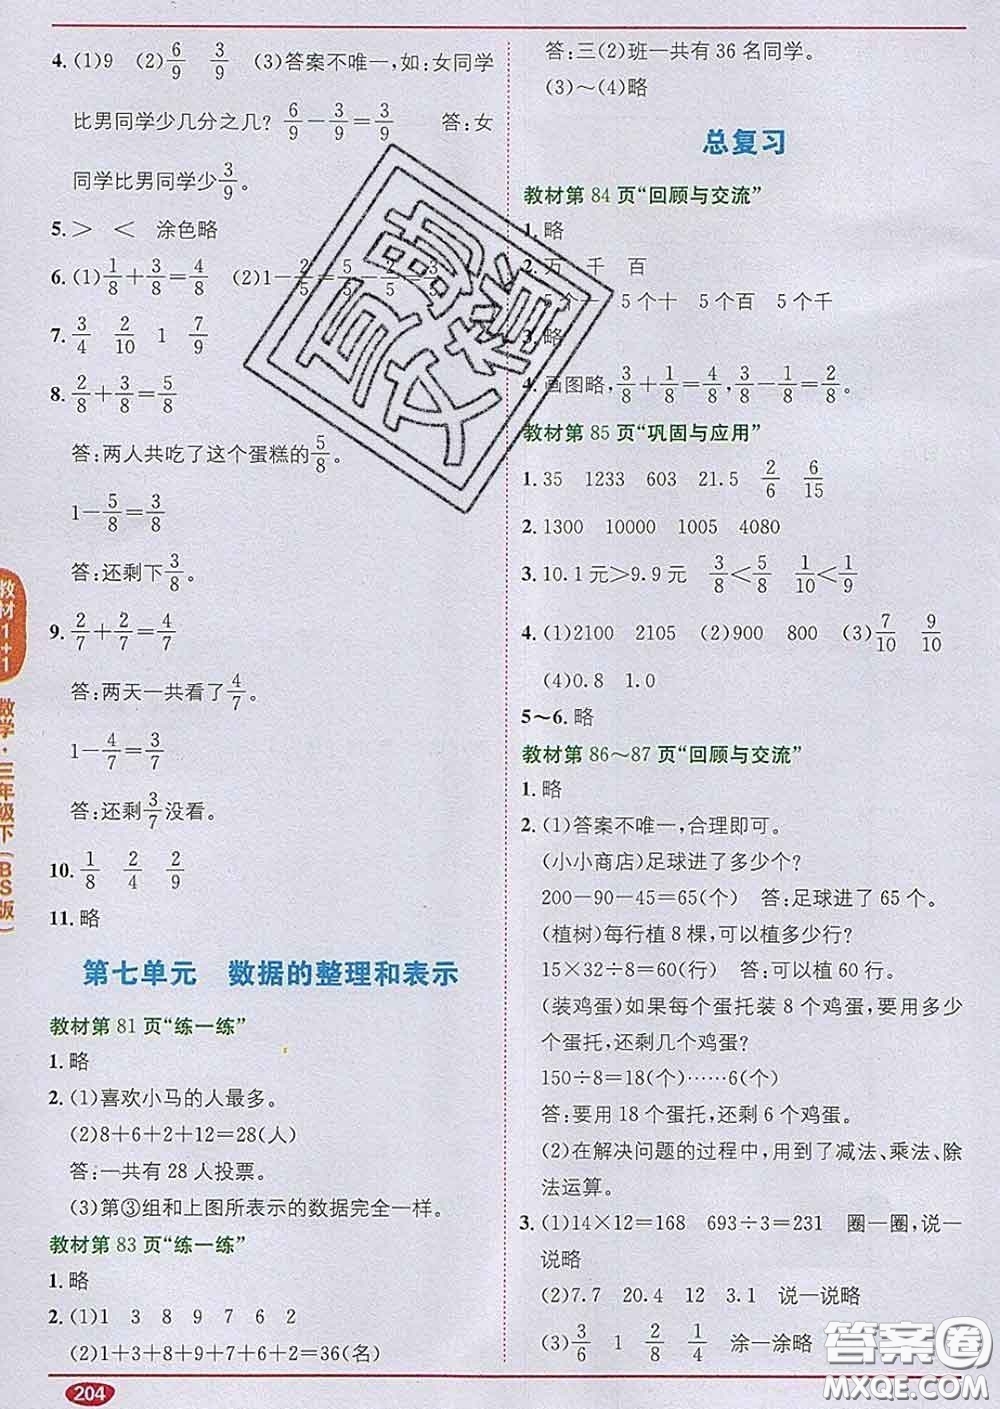 4. (1)9 (2)6/9 3/9 (3)答案不唯一,如:女同学
比男同学少几分之几? 6/9-3/9=3/9 答:女
同学比男同学少3/9。
5. > < 涂色略
6. (1)1/8+3/8=4/8 (2)1-2/5=5/5-2/5=3/5
7. 3/4 2/10 1 7/9
8. 2/8+3/8=5/8
答:两人共吃了这个蛋糕的5/8。
1-5/8=3/8
答:还剩下3/8。
9. 2/7+2/7=4/7
答:两天一共看了4/7。
1-4/7=3/7
答:还剩3/7没看。
10. 1/8 2/4 2/9
11. 略
第七单元 数据的整理和表示
教材第 81 页“练一练”
1. 略
2. (1)喜欢小马的人最多。
(2)8+6+2+12=28(人)
答:一共有 28 人投票。
(3)第③组和上图所表示的数据完全一样。
教材第 83 页“练一练”
1. 略
2. (1)1 3 8 9 7 6 2
(2)1+3+8+9+7+6+2=36(名)
答:三(2)班一共有 36 名同学。
(3)~(4)略
总复习
教材第 84 页“回顾与交流”
1. 略
2. 万 千 百
5个一 5个十 5个百 5个千
3. 略
4. 画图略,3/8+1/8=4/8,3/8-1/8=2/8。
教材第 85 页“巩固与应用”
1. 35 1233 603 21.5 2/6 6/15
2. 1300 10000 1005 4080
3. 10.1元>9.9元 3/8<5/8 1/10<1/9
4. (1)2100 2105 (2)900 800 (3)7/10 9/10
(4)0.8 1.0
5~6. 略
教材第 86~87 页“回顾与交流”
1. 略
2. (1)答案不唯一,合理即可。
(小小商店)足球进了多少个?
200-90-45=65(个) 答:足球进了 65 个。
(植树)每行植 8 棵,可以植多少行?
15×32÷8=60(行) 答:可以植 60 行。
(装鸡蛋)如果每个蛋托装 8 个鸡蛋,要用多少
个蛋托,还剩几个鸡蛋?
150÷8=18(个)……6(个)
答:要用 18 个蛋托,还剩 6 个鸡蛋。
(2)在解决问题的过程中,用到了减法、乘法、除
法运算。
3. (1)14×12=168 693÷3=231 圈一圈,说一
说略
(2)7.7 20.4 12 3.1 说一说略
(3)3/6 1 2/8 1/4 涂一涂略
教材1+1 数学·三年级下(BS版)
204
答案圈
MXQE.COM